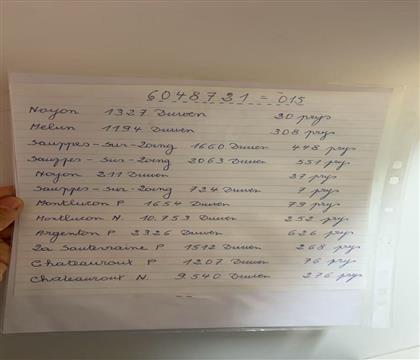 6048731 = 015
Noyon 1327 Duiven 30 prijs
Melun 1194 Duiven 308 prijs
Souppes-sur-Loing 1660 Duiven 448 prijs
Souppes-sur-Loing 2063 Duiven 551 prijs
Noyon 211 Duiven 37 prijs
Souppes-sur-Loing 724 Duiven 7 prijs
Montlucon P 1654 Duiven 79 prijs
Montlucon N. 10.753 Duiven 252 prijs
Argenton P 2326 Duiven 626 prijs
La Souterraine P 1512 Duiven 268 prijs
Chateauroux P 1207 Duiven 76 prijs
Chateauroux N. 9540 Duiven 276 prijs